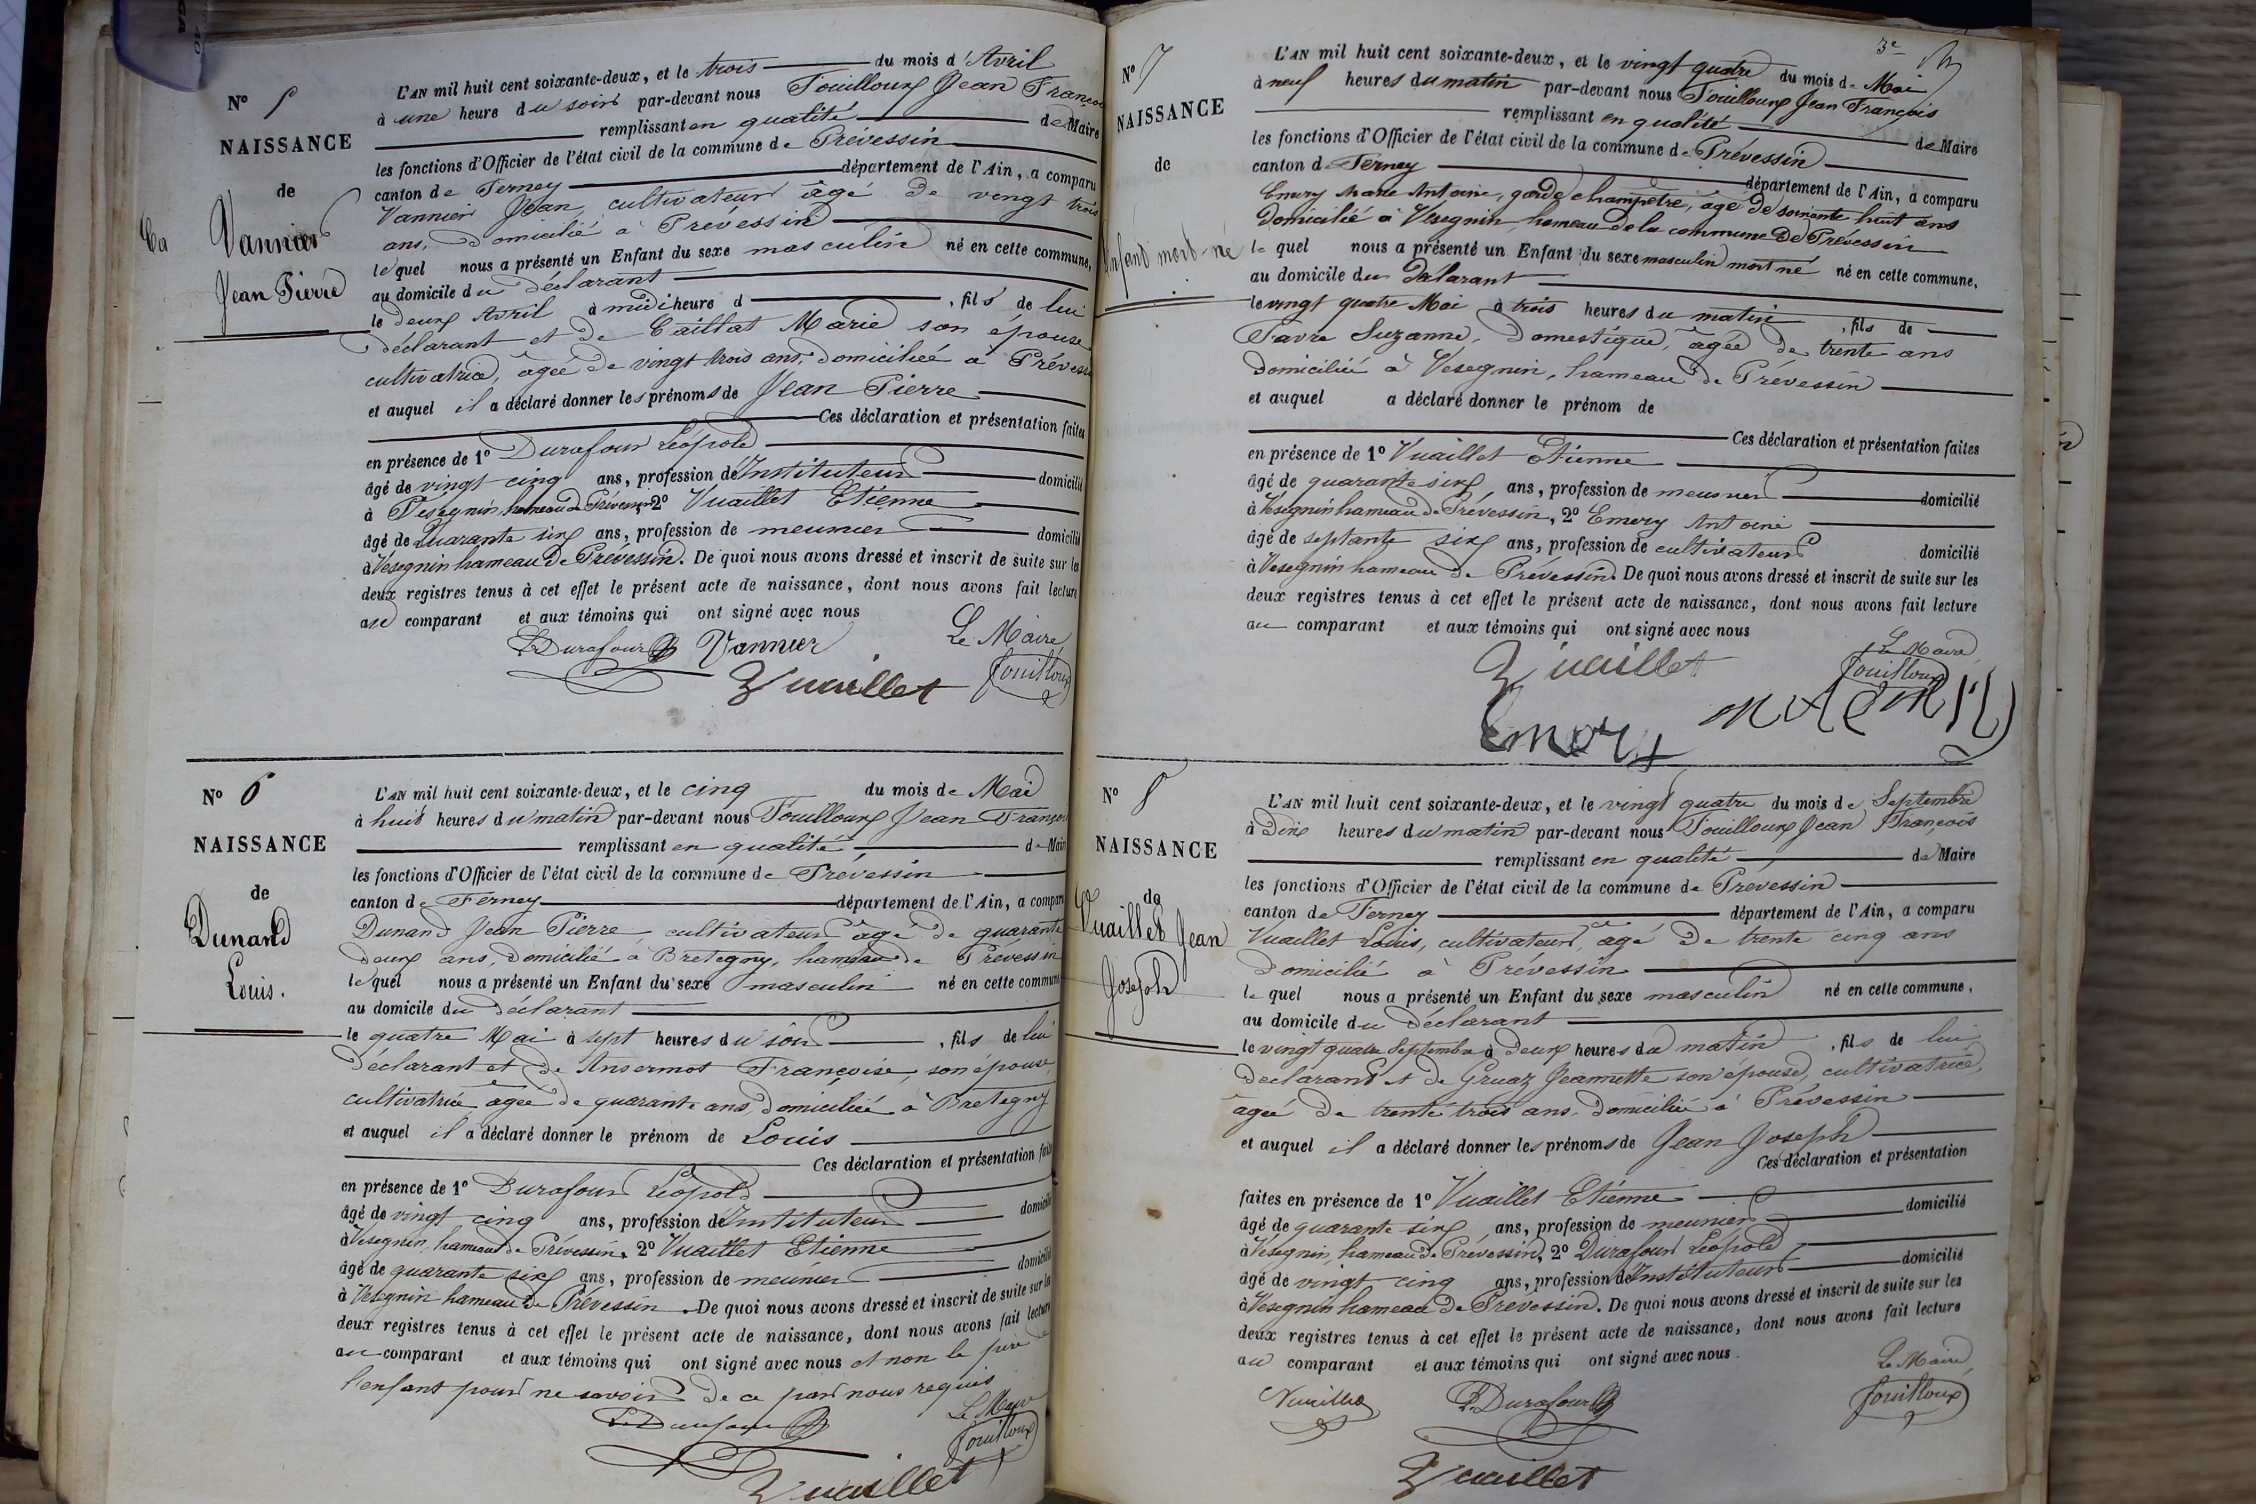 N° 5
NAISSANCE
de
Vannier
Jean Pierre
L'AN mil huit cent soixante-deux, et le trois du mois d'Avril
à une heure du soir par-devant nous Fouilloux Jean François
remplissant en qualité de Maire
les fonctions d'Officier de l'état civil de la commune de Prévessin
canton de Ferney département de l'Ain, a comparu
Vannier Jean, cultivateur âgé de vingt trois
ans, domicilié à Prévessin
lequel nous a présenté un Enfant du sexe masculin né en cette commune,
au domicile du déclarant
le deux Avril à midi heure d , fils de lui
déclarant et de Caillat Marie son épouse
cultivatrice, âgée de vingt trois ans, domiciliée à Prévessin
et auquel il a déclaré donner les prénoms de Jean Pierre
Ces déclaration et présentation faites
en présence de 1° Durafour Léopold
âgé de vingt cinq ans, profession d'Instituteur domicilié
à Vésegnin hameau de Prévessin 2° Vuaillet Etienne
âgé de Quarante six ans, profession de meunier domicilié
à Vésegnin hameau de Prévessin. De quoi nous avons dressé et inscrit de suite sur les
deux registres tenus à cet effet le présent acte de naissance, dont nous avons fait lecture
au comparant et aux témoins qui ont signé avec nous
Le Maire
Durafour Vannier
Fouilloux
Vuaillet
N° 6
NAISSANCE
de
Dunand
Louis.
L'AN mil huit cent soixante-deux, et le cinq du mois de Mai
à huit heures du matin par-devant nous Fouilloux Jean François
remplissant en qualité de Maire
les fonctions d'Officier de l'état civil de la commune de Prévessin
canton de Ferney département de l'Ain, a comparu
Dunand Jean Pierre cultivateur âgé de quarante
deux ans, domicilié à Bretegny, hameau de Prévessin
lequel nous a présenté un Enfant du sexe masculin né en cette commune
au domicile du déclarant
le quatre Mai à sept heures du soir , fils de lui
déclarant et de Ansermot Françoise, son épouse,
cultivatrice âgée de quarante ans, domiciliée à Bretegny
et auquel il a déclaré donner le prénom de Louis
Ces déclaration et présentation faites
en présence de 1° Durafour Léopold
âgé de vingt cinq ans, profession d'Instituteur domicilié
à Vesegnin, hameau de Prévessin. 2° Vuaillet Etienne
âgé de quarante six ans, profession de meunier domicilié
à Vesegnin hameau de Prévessin. De quoi nous avons dressé et inscrit de suite sur les
deux registres tenus à cet effet le présent acte de naissance, dont nous avons fait lecture
au comparant et aux témoins qui ont signé avec nous et non le père de
l'enfant pour ne savoir de ce par nous requis
Le Maire
Durafour
Fouilloux
Vuaillet
3e
N° 7
NAISSANCE
de
Enfant mort-né
L'AN mil huit cent soixante-deux, et le vingt quatre du mois de Mai
à neuf heures du matin par-devant nous Fouilloux Jean François
remplissant en qualité de Maire
les fonctions d'Officier de l'état civil de la commune de Prévessin
canton de Ferney département de l'Ain, a comparu
Emery Marie Antoine, garde champêtre, âgé de soixante huit ans
Domicilié à Vesegnin, hameau de la commune de Prévessin
le quel nous a présenté un Enfant du sexe masculin mort né né en cette commune,
au domicile du Déclarant
le vingt quatre Mai à trois heures du matin , fils de
Favre Suzanne, Domestique, âgée de trente ans
Domiciliée à Vesegnin, hameau de Prévessin
et auquel a déclaré donner le prénom de
Ces déclaration et présentation faites
en présence de 1° Vuaillet Etienne
âgé de quarante six ans, profession de meunier domicilié
à Vesegnin hameau de Prévessin, 2° Emery Antoine
âgé de septante six ans, profession de cultivateur domicilié
à Vesegnin hameau de Prévessin. De quoi nous avons dressé et inscrit de suite sur les
deux registres tenus à cet effet le présent acte de naissance, dont nous avons fait lecture
au comparant et aux témoins qui ont signé avec nous
Le Maire
Vuaillet
Fouilloux
Emery
N° 8
NAISSANCE
de
Vuaillet Jean
Joseph
L'AN mil huit cent soixante-deux, et le vingt quatre du mois de Septembre
à Dix heures du matin par-devant nous Fouilloux Jean François
remplissant en qualité de Maire
les fonctions d'Officier de l'état civil de la commune de Prévessin
canton de Ferney département de l'Ain, a comparu
Vuaillet Louis, cultivateur, âgé de trente cinq ans
Domicilié à Prévessin
le quel nous a présenté un Enfant du sexe masculin né en cette commune,
au domicile du Déclarant
le vingt quatre Septembre à Deux heures du matin , fils de lui
déclarant et de Gruaz Jeannette son épouse, cultivatrice,
âgée de trente trois ans. Domiciliée à Prévessin
et auquel il a déclaré donner les prénoms de Jean Joseph
Ces déclaration et présentation
faites en présence de 1° Vuaillet Etienne
âgé de quarante six ans, profession de meunier domicilié
à Vesegnin, hameau de Prévessin, 2° Durafour Léopold
âgé de vingt cinq ans, profession d'Instituteur domicilié
à Vesegnin hameau de Prévessin. De quoi nous avons dressé et inscrit de suite sur les
deux registres tenus à cet effet le présent acte de naissance, dont nous avons fait lecture
au comparant et aux témoins qui ont signé avec nous.
Le Maire
Durafour Fouilloux
Vuaillet